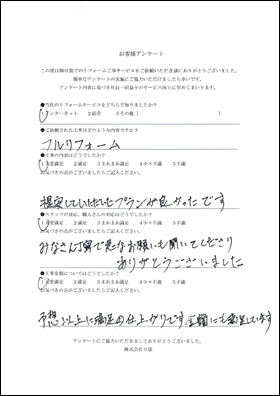 お客様アンケート
この度は㈱日装でのリフォーム工事サービスをご依頼いただき誠にありがとうございました。
簡単なアンケートの実施にご協力いただけましたら幸いです。
アンケート内容に基づき社員一同益々のサービス向上に努めてまいります。
●当社のリフォームサービスをどちらで知りましたか?
1インターネット 2紹介 3その他( )
●ご依頼された工事はどのような内容ですか?
フルリフォーム
●工事の内容はどうでしたか?
1大変満足 2満足 3まあまあ満足 4少々不満 5不満
お気づきの点がございましたらご記入ください。
提案していただいたプランが良かったです
●スタッフの対応、職人さんの対応はどうでしたか?
1大変満足 2満足 3まあまあ満足 4少々不満 5不満
お気づきの点がございましたらご記入ください。
みなさん丁寧で急なお願いも聞いてくださり
ありがとうございました
●工事金額についてはどうでしたか?
1大変満足 2満足 3まあまあ満足 4少々不満 5不満
お気づきの点がございましたらご記入ください。
予想以上に満足の仕上がりです 金額にも満足しています
アンケートにご協力いただきましてありがとうございました。
株式会社日装